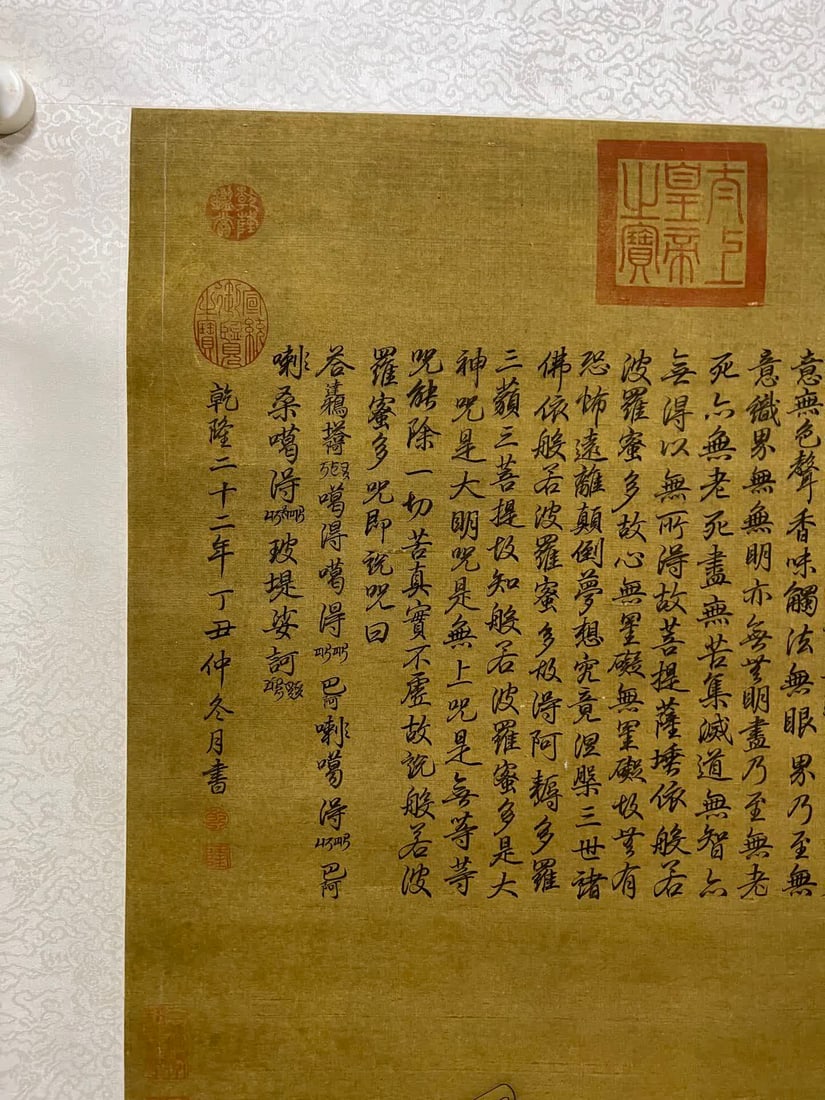 太上皇帝之寶
意無色聲香味觸法無眼界乃至無
意識界無無明亦無無明盡乃至無老
死亦無老死盡無苦集滅道無智亦
無得以無所得故菩提薩埵依般若
波羅蜜多故心無罣礙無罣礙故無有
恐怖遠離顛倒夢想究竟涅槃三世諸
佛依般若波羅蜜多故得阿耨多羅
三藐三菩提故知般若波羅蜜多是大
神咒是大明咒是無上咒是無等等
咒能除一切苦真實不虛故說般若波
羅蜜多咒即說咒曰
噶得噶得巴阿喇噶得巴阿
喇桑噶得玻堤娑訶
乾隆二十二年丁丑仲冬月書
乾隆鑑賞
宣統御覽之寶